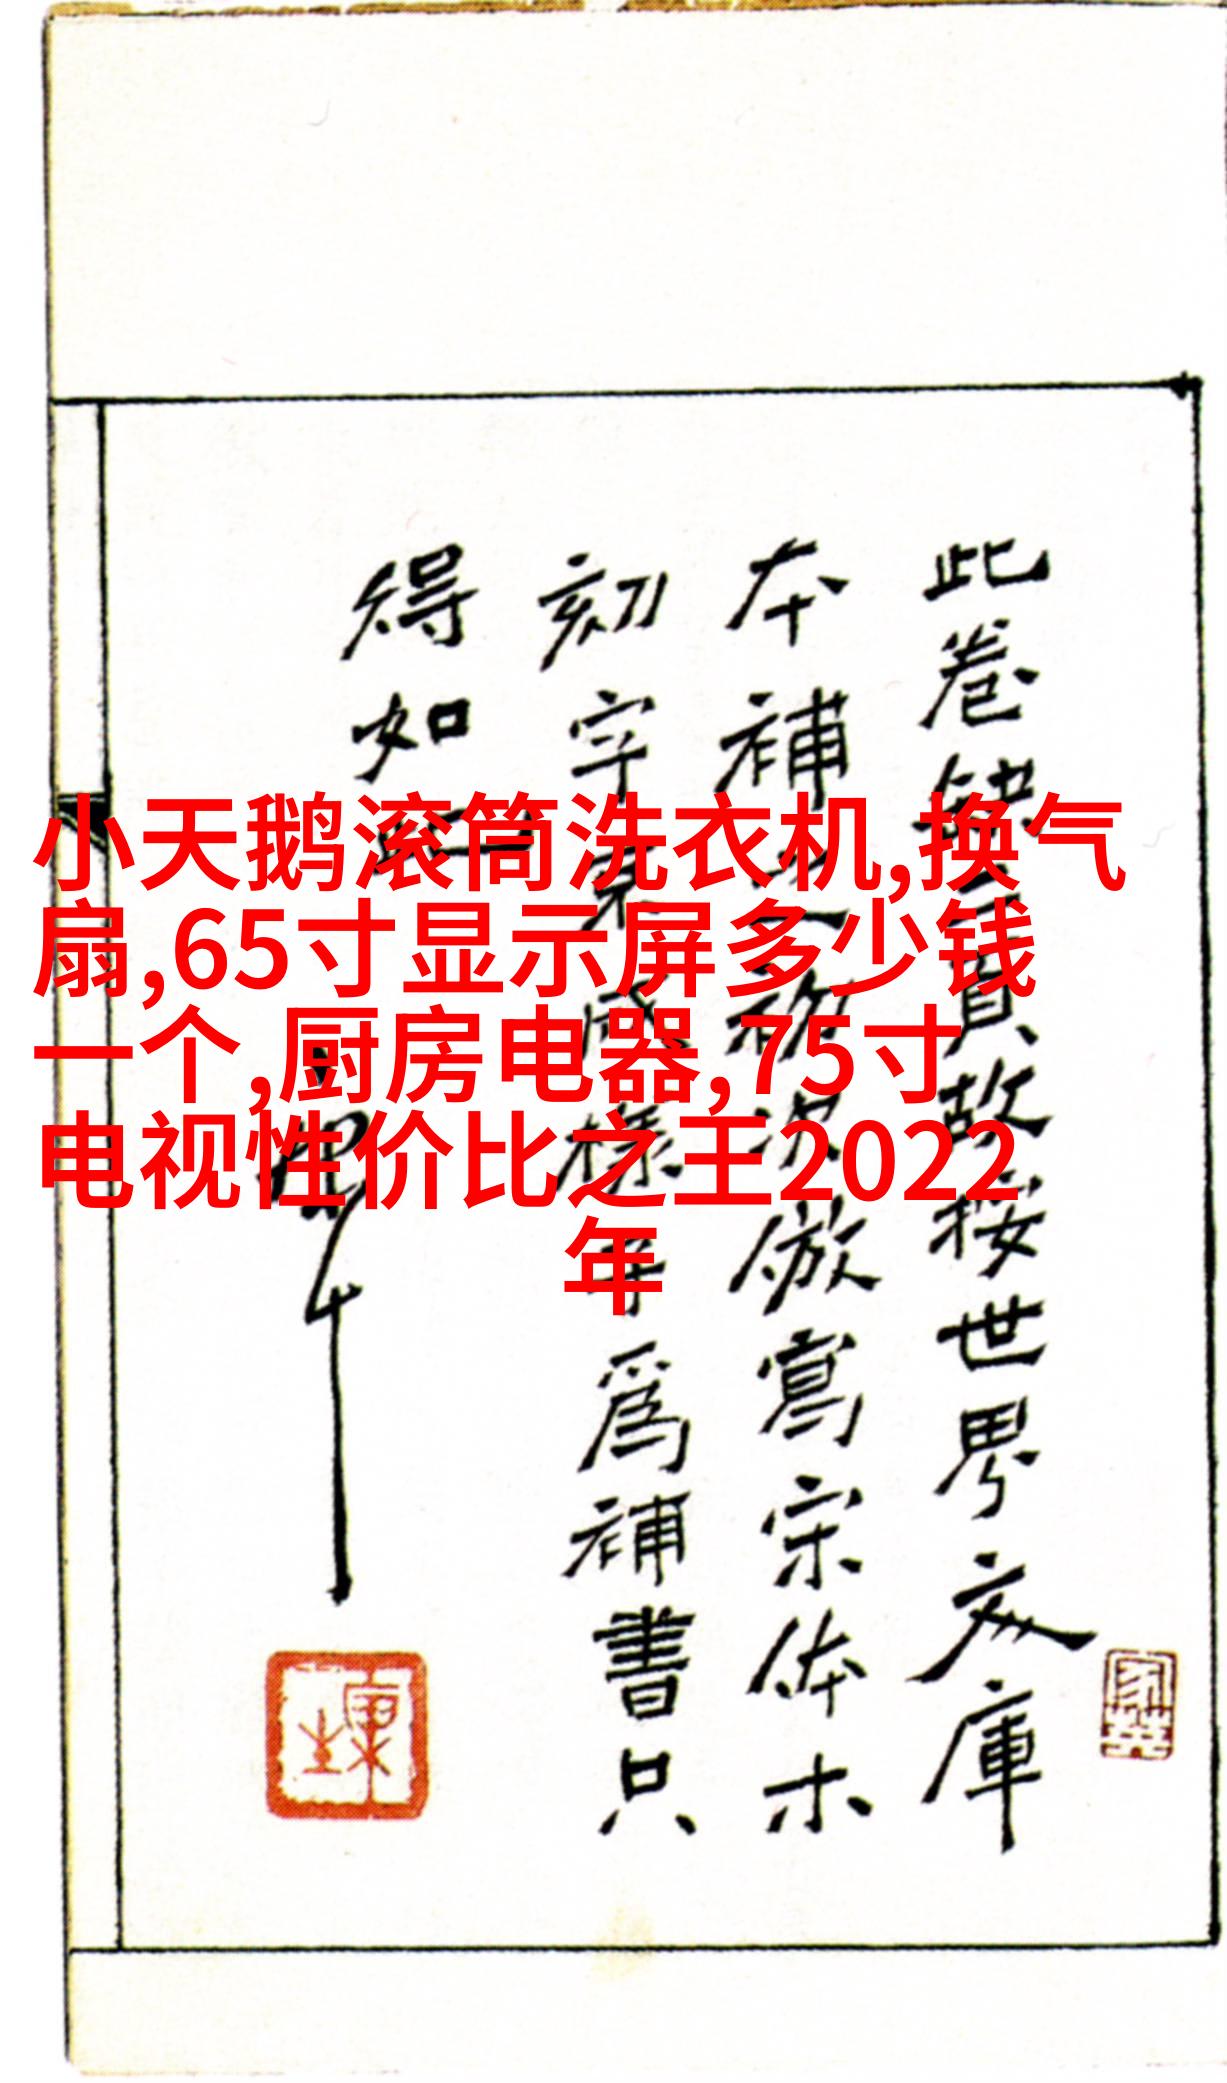 小天鹅滚筒洗衣机,换气
扇,65寸显示屏多少钱
一个,厨房电器,75寸
电视性价比之王2022
年
此卷缺三頁故按世界文庫
本補之初次倣寫宗体木
刻字未成樣子為補書只
得如